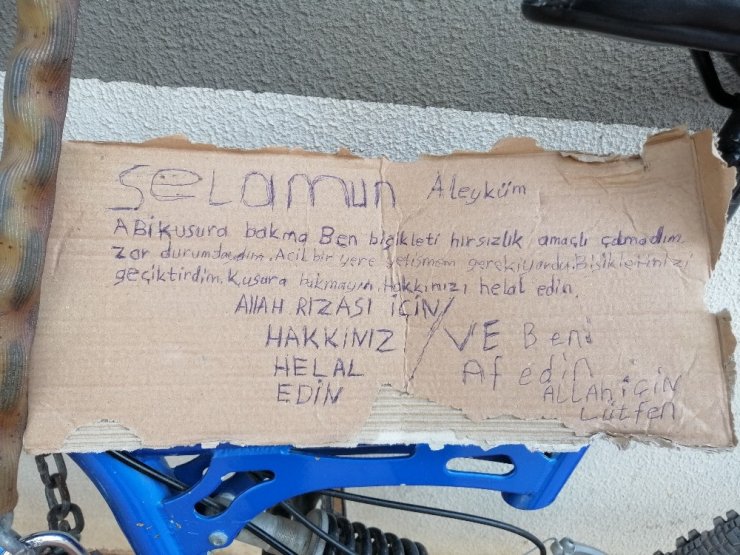 SELamun Aleyküm
ABi Kusura bakma Ben bisikleti hırsızlık amaçlı çalmadım
Zor durumdaydım. Acil bir yere yetişmem gerekiyordu. Bisikletinizi
geçiktirdim. Kusura bakmayın. Hakkınızı helal edin.
ALLAH RIZASI İÇİN
HAKKINIZ
HELAL
EDİN
VE Beni
Af edin
ALLAH İÇİN
Lütfen